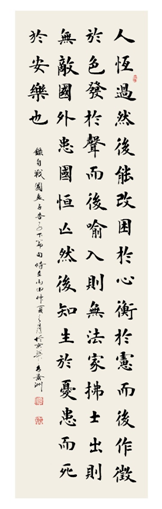 人恆過然後能改困於心衡於慮而後作徵
於色發於聲而後喻入則無法家拂士出則
無敵國外患國恆亡然後知生於憂患而死
於安樂也
錄自戰國孟子告子下篇句